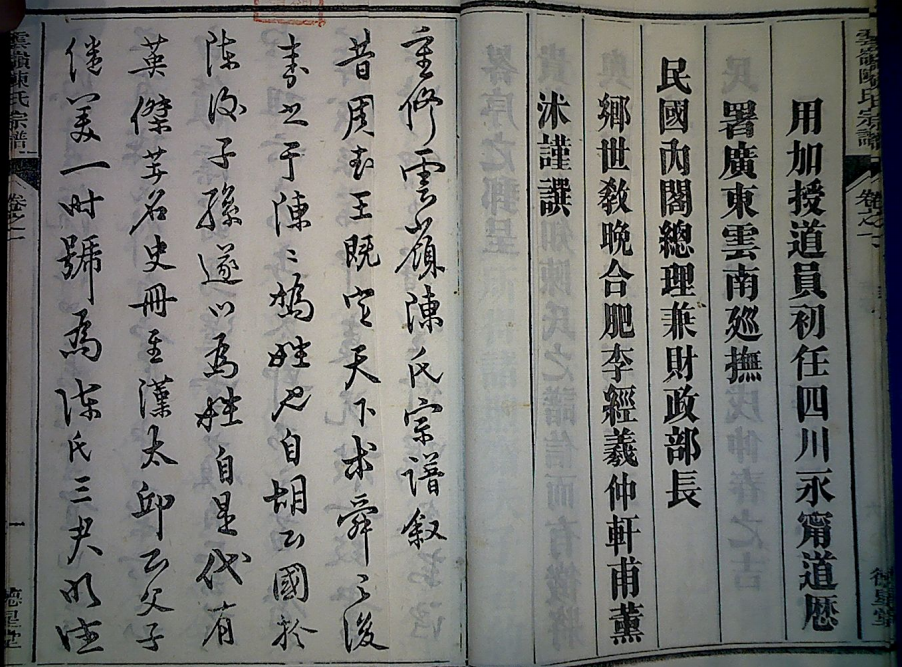 雲嶺陳氏宗譜
卷之一
德星堂
用加授道員初任四川永甯道歷
署廣東雲南廵撫
民國內閣總理兼財政部長
鄉世教晚合肥李經羲仲軒甫薰
沐謹譔
重修雲嶺陳氏宗譜叙
昔周武王既定天下求舜之後
封之于陳陳媯姓也自胡公國於
陳後子孫遂以為姓自是代有
英傑著名史冊至漢太邱公父子
濟美一時號為陳氏三君明德
雲嶺陳氏宗譜
卷之一
一
德星堂